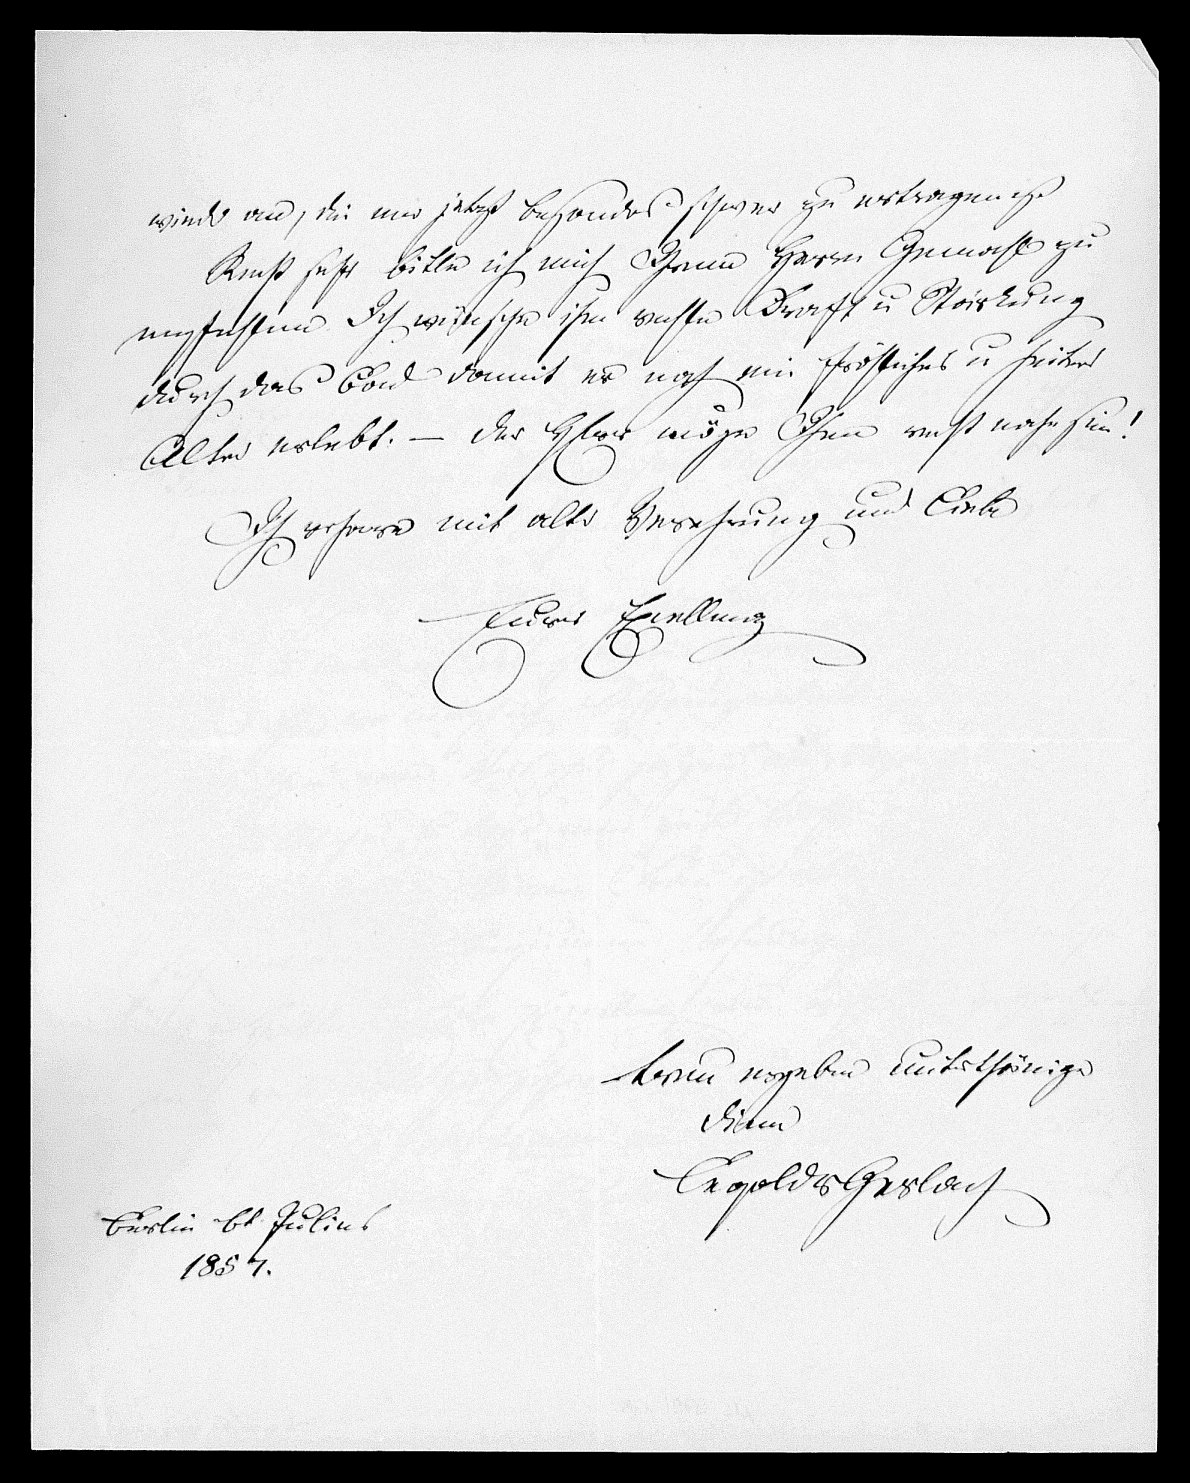 wieder an, die mir jetzt besonders schwer zu ertragen ist
Recht sehr bitte ich mich Ihrem Herrn Gemahl zu
empfehlen. Ich wünsche ihm rechte Kraft u Stärkung
durch das Bad damit er noch ein fröhliches u heitres
Alter erlebt. — Der Herr möge Ihnen recht nahe sein!
Ich verharre mit alter Verehrung und Liebe
Eurer Excellenz
treu ergebner unterthäniger
Diener
Leopold v Gerlach
Berlin 6t Julius
1857.